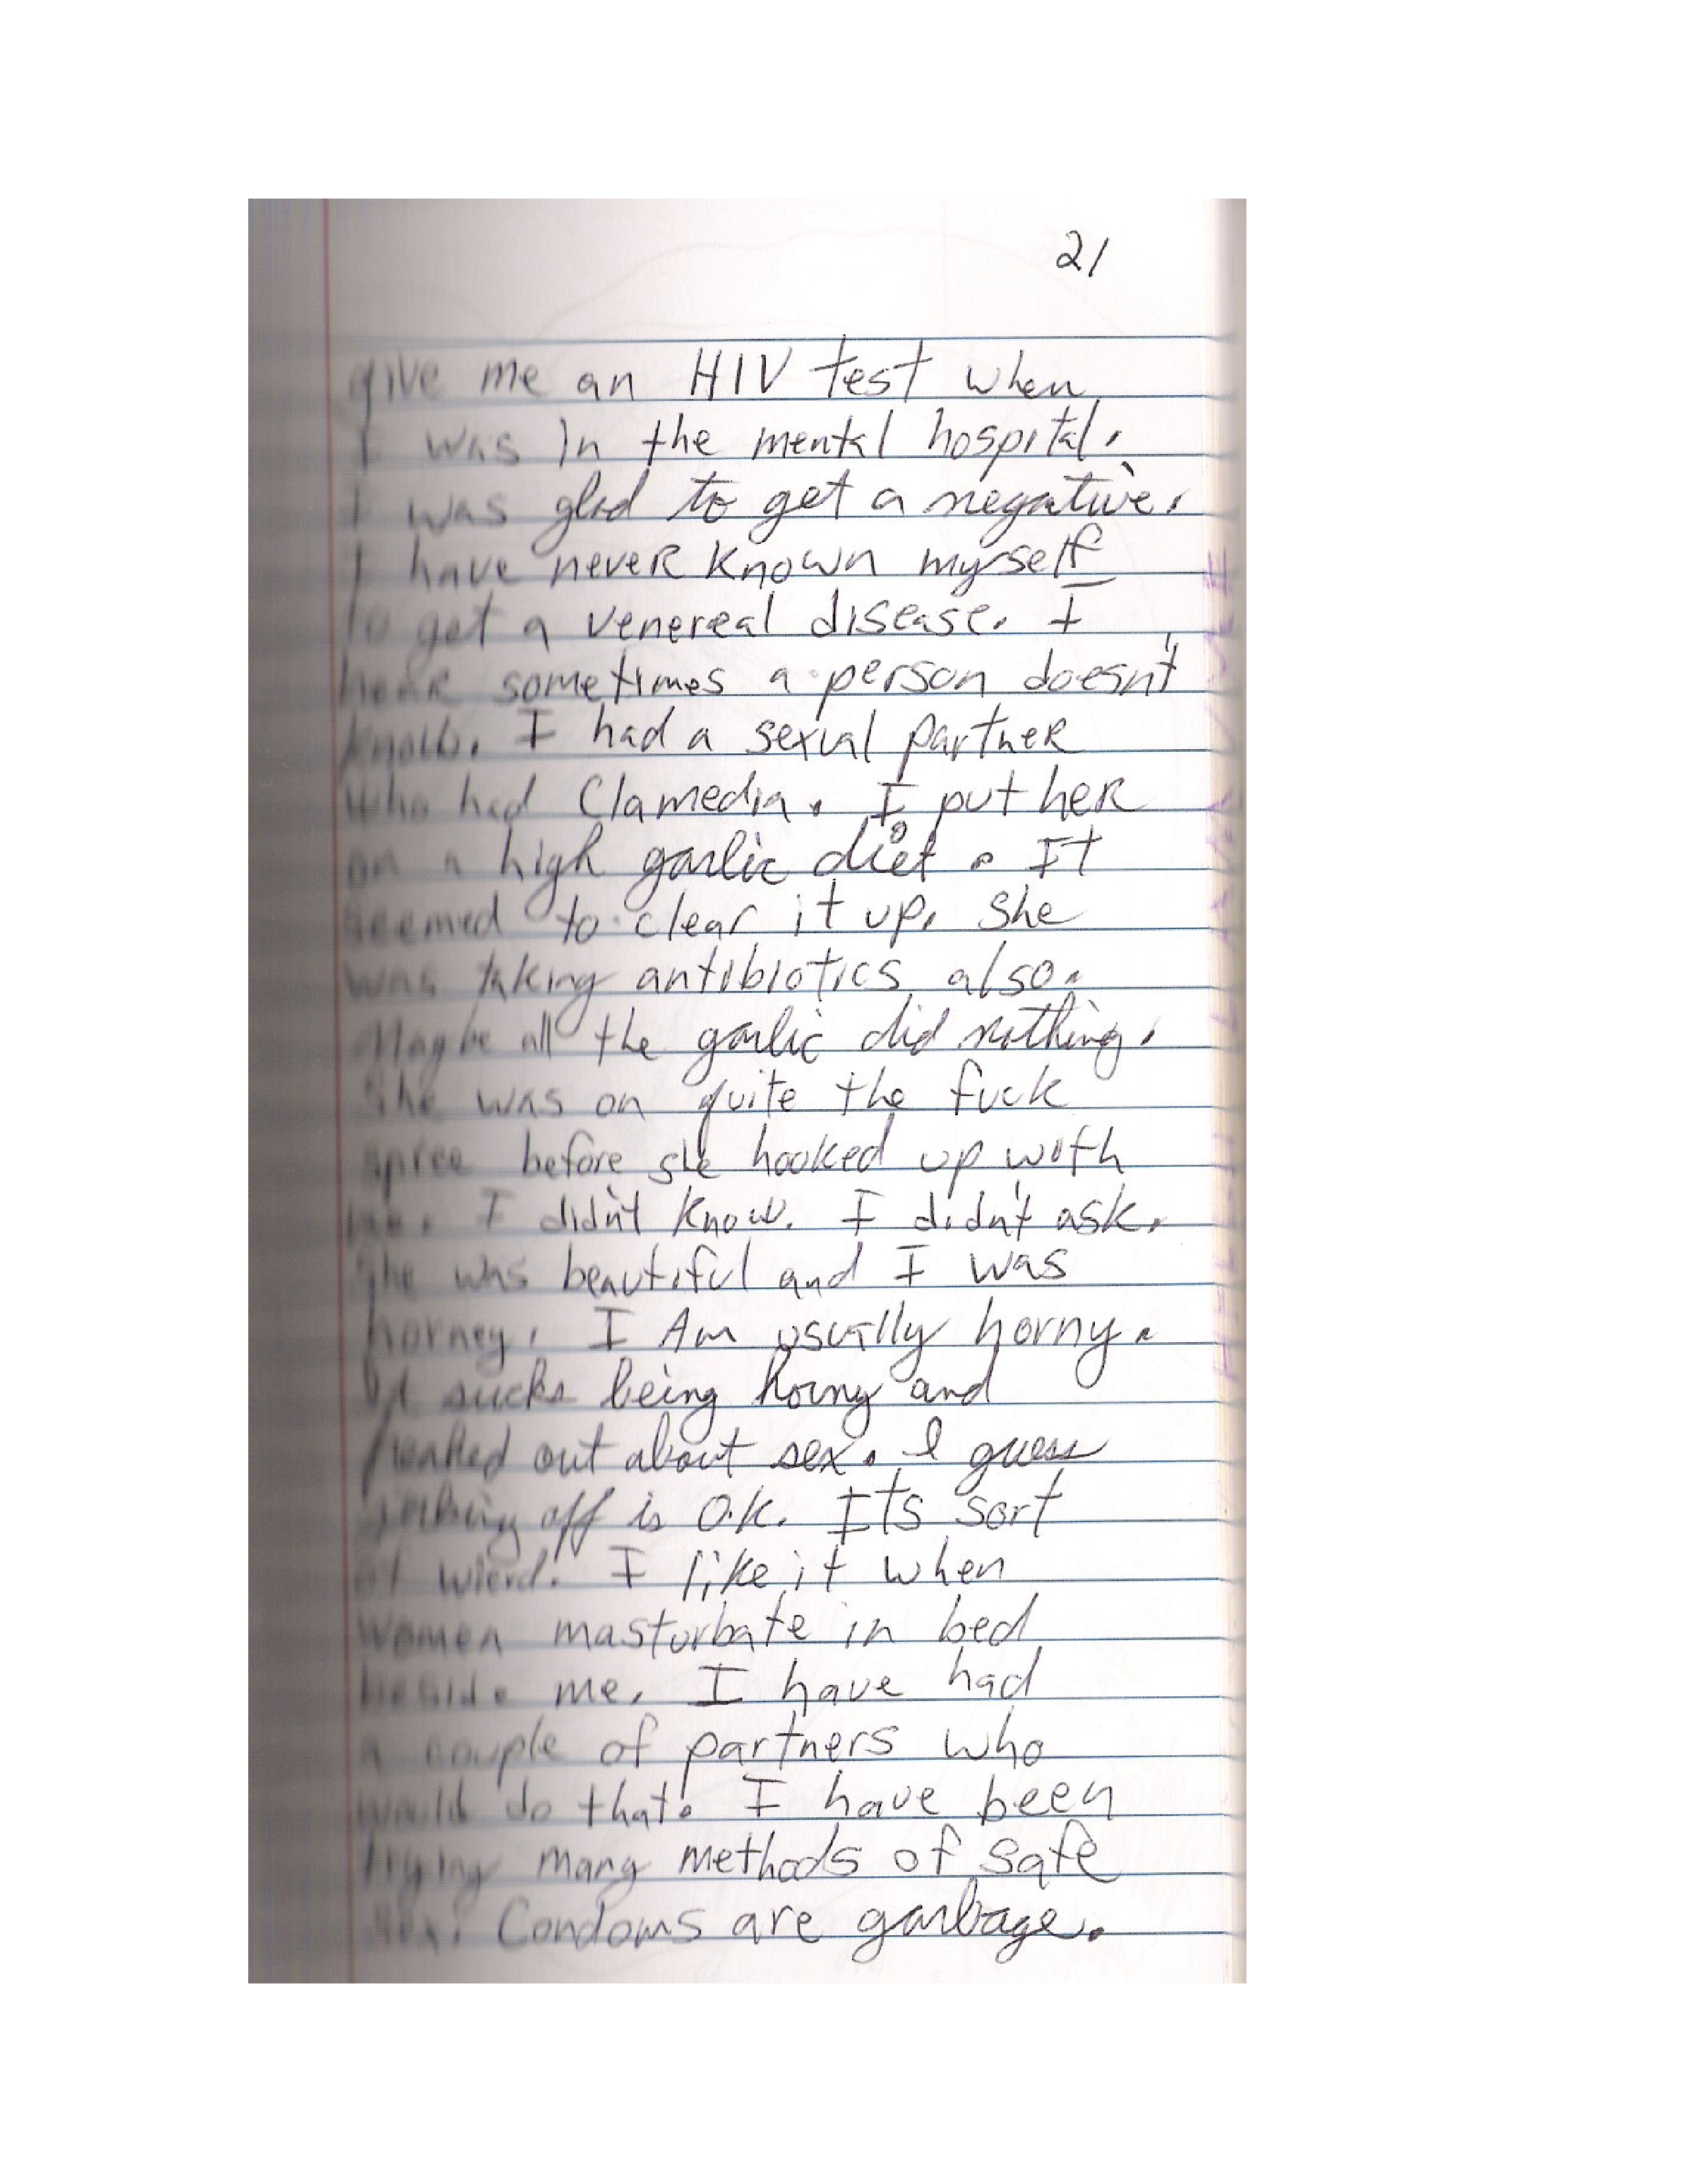 21
give me an HIV test when
I was in the mental hospital.
I was glad to get a negative.
I have never known myself
to get a venereal disease. I
hear sometimes a person doesn't
know. I had a sexual partner
who had Clamedia. I put her
on a high garlic diet. It
seemed to clear it up. She
was taking antibiotics also.
Maybe all the garlic did nothing.
She was on quite the fuck
spree before she hooked up with
me. I didn't know. I didn't ask.
She was beautiful and I was
horney. I Am usually horny.
It sucks being horny and
freaked out about sex. I guess
jerking off is O.K. Its sort
of wierd. I like it when
women masturbate in bed
beside me. I have had
a couple of partners who
would do that. I have been
trying many methods of safe
sex. Condoms are garbage.